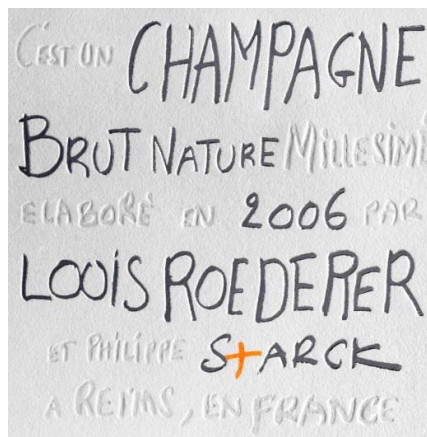 C'EST UN CHAMPAGNE
BRUT NATURE MILLESIMÉ
ELABORÉ EN 2006 PAR
LOUIS ROEDERER
ET PHILIPPE STARCK
A REIMS, EN FRANCE